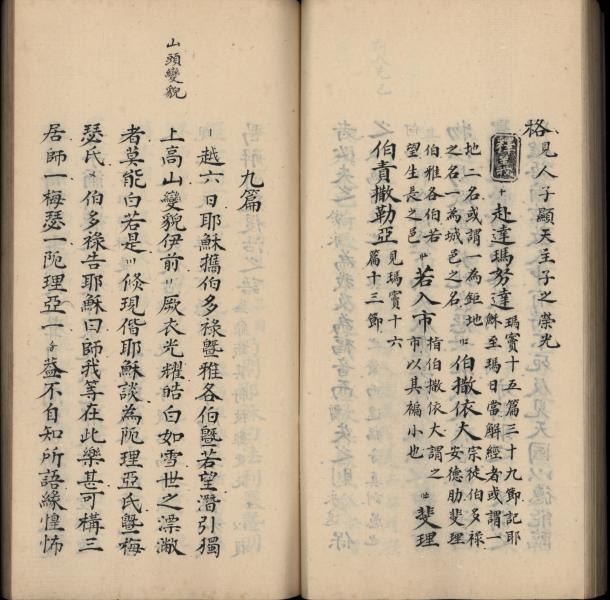 格見人子顯天主子之榮光
釋義 十 赴達瑪努達 瑪竇十五篇三十九節記耶
穌至瑪日當解經者或謂一
地二名或謂一為鉅地
之名一為城邑之名 伯撒依大 宗徒伯多祿
安德肋斐理
伯雅各伯若
望生長之邑 若入市 指伯撒依大謂之
市以其褊小也 斐理
伯責撒勒亞 見瑪竇十六
篇十三節
山頭變貌
九篇
越六日耶穌攜伯多祿暨雅各伯暨若望潛引獨
上高山變貌伊前〢厥衣光耀皓白如雪世之漂澣
者莫能白若是〣倏現偕耶穌談為阨理亞氏暨梅
瑟氏〤伯多祿告耶穌曰師我等在此樂甚可構三
居師一梅瑟一阨理亞一〥蓋不自知所語緣惶怖